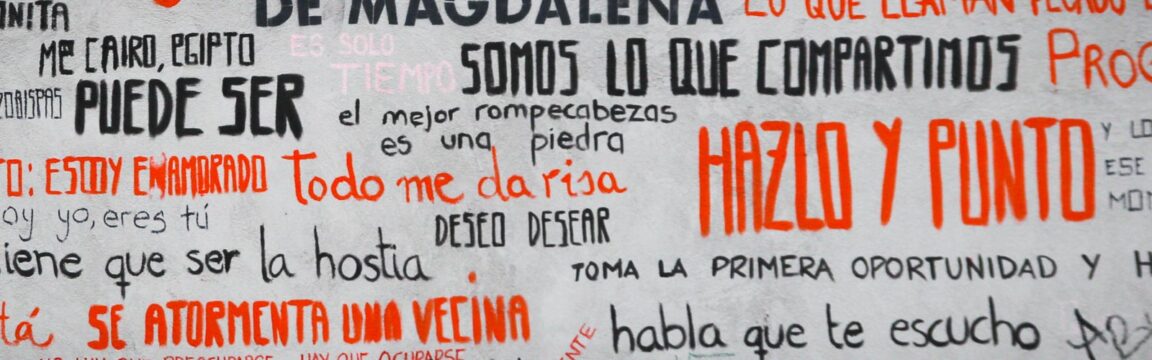 DE MAGDALENA
LO QUE LLAMAN
ME CAIRO, EGIPTO
ES SOLO
TIEMPO
SOMOS LO QUE COMPARTIMOS
PUEDE SER
el mejor rompecabezas
es una piedra
HAZLO Y PUNTO
Y LO
ESE
ESTOY ENAMORADO
Todo me da risa
yo, eres tú
DESEO DESEAR
que ser la hostia
TOMA LA PRIMERA OPORTUNIDAD Y H
SE ATORMENTA UNA VECINA
habla que te escucho
HAY QUE OCUPARSE